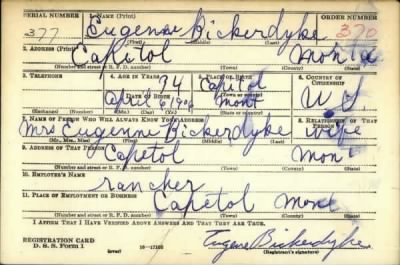 SERIAL NUMBER 1. NAME (Print) ORDER NUMBER
377 Eugenne Bickerdyke 370
(First) (Middle) (Last)
2. ADDRESS (Print)
Capitol Mont
(Number and street or R. F. D. number) (Town) (County) (State)
3. TELEPHONE 4. AGE IN YEARS 5. PLACE OF BIRTH 6. COUNTRY OF CITIZENSHIP
34 Capitol
DATE OF BIRTH (Town or county)
April 6 1906 Mont U.S.
(Exchange) (Number) (Mo.) (Day) (Yr.) (State or country)
7. NAME OF PERSON WHO WILL ALWAYS KNOW YOUR ADDRESS 8. RELATIONSHIP OF THAT PERSON
Mrs Eugenne Bickerdyke wife
(Mr., Mrs., Miss) (First) (Middle) (Last)
9. ADDRESS OF THAT PERSON
Capetol Mont
(Number and street or R. F. D. number) (Town) (County) (State)
10. EMPLOYER'S NAME
rancher
11. PLACE OF EMPLOYMENT OR BUSINESS
Capetol Mont
(Number and street or R. F. D. number) (Town) (County) (State)
I AFFIRM THAT I HAVE VERIFIED ABOVE ANSWERS AND THAT THEY ARE TRUE.
REGISTRATION CARD
D. S. S. FORM 1 (over) 16-17105 Eugene Bickerdyke
(Registrant's signature)